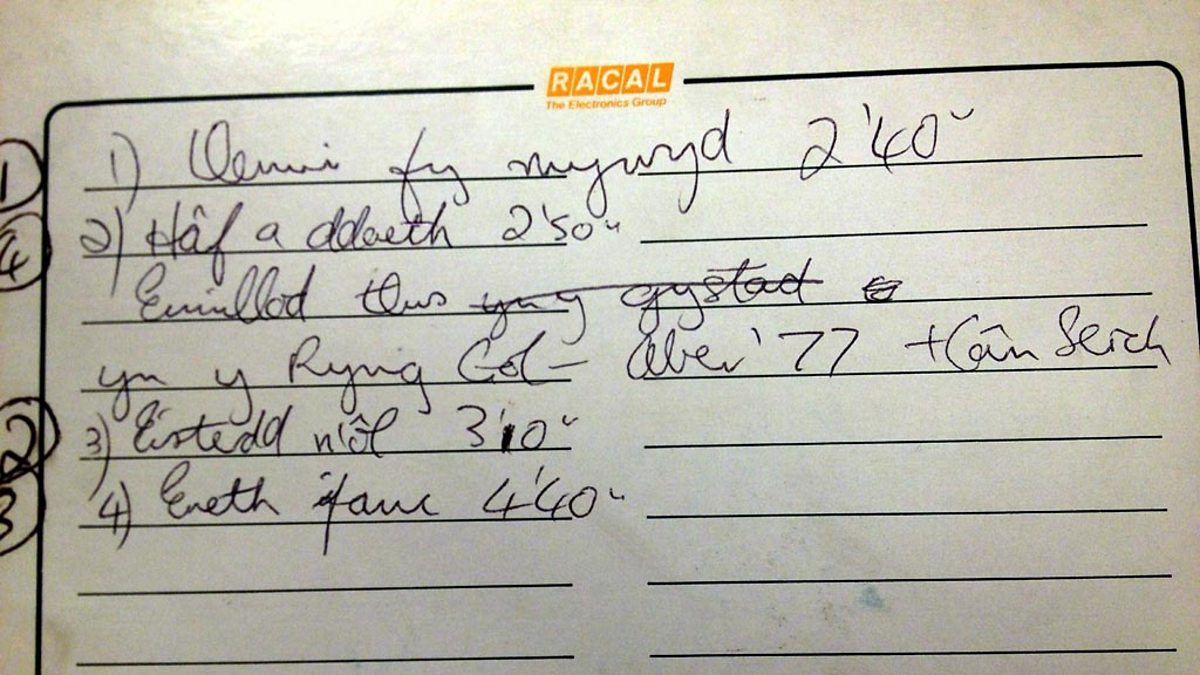 RACAL
The Electronics Group
1 1) fy mywyd 2'40"
4 2) Hâf a ddaeth 2'50"
Enillod tlws yn y gystad
yn y Ryng Gol - Aber '77 + Cân Serch
2 3) Eistedd n'ôl 3'10"
3 4) Eneth ifanc 4'40"